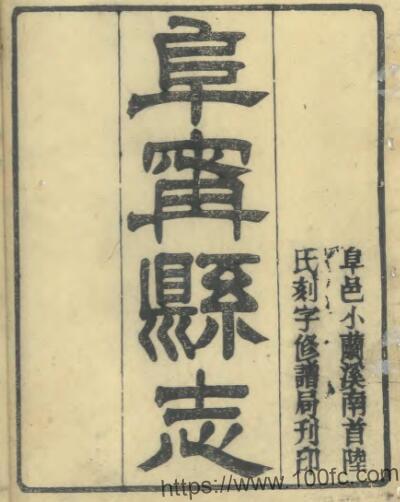 阜邑小蘭溪南首陸
氏刻字修譜局刊印
阜甯縣志
https://www.100fc.com